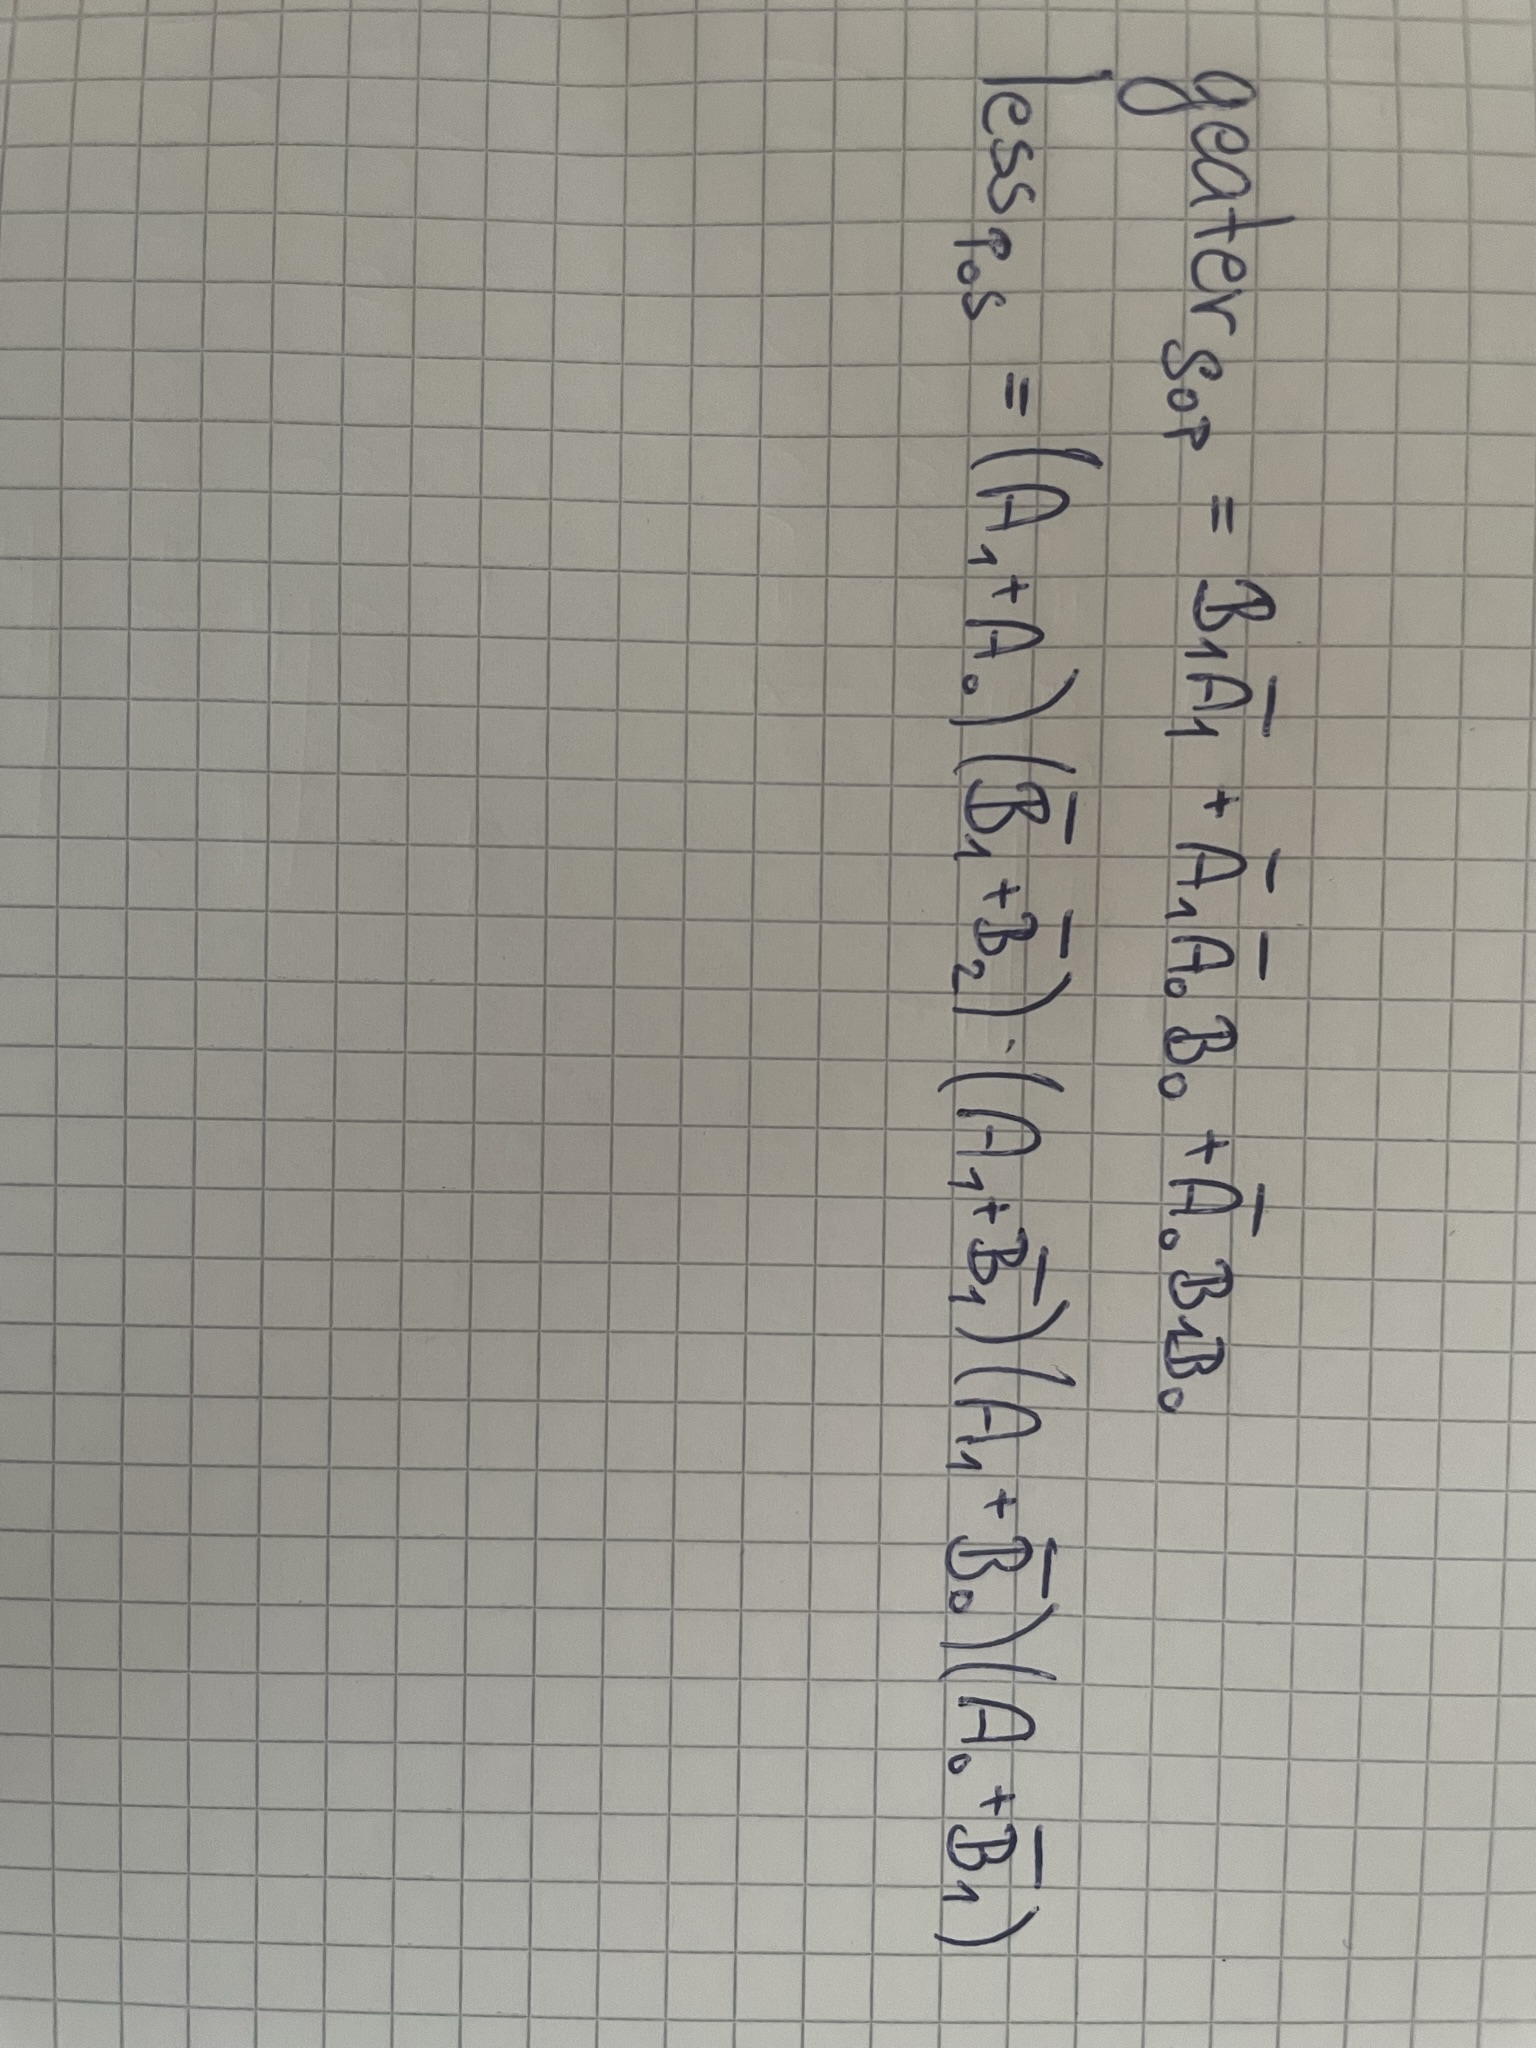 geater SOP = B₁A̅₁ + A̅₁A̅₀B₀ + A̅₀B₁B₀
less POS = (A₁+A₀)(B̅₁+B̅₂)·(A₁+B̅₁)(A₁+B̅₀)(A₀+B̅₁)